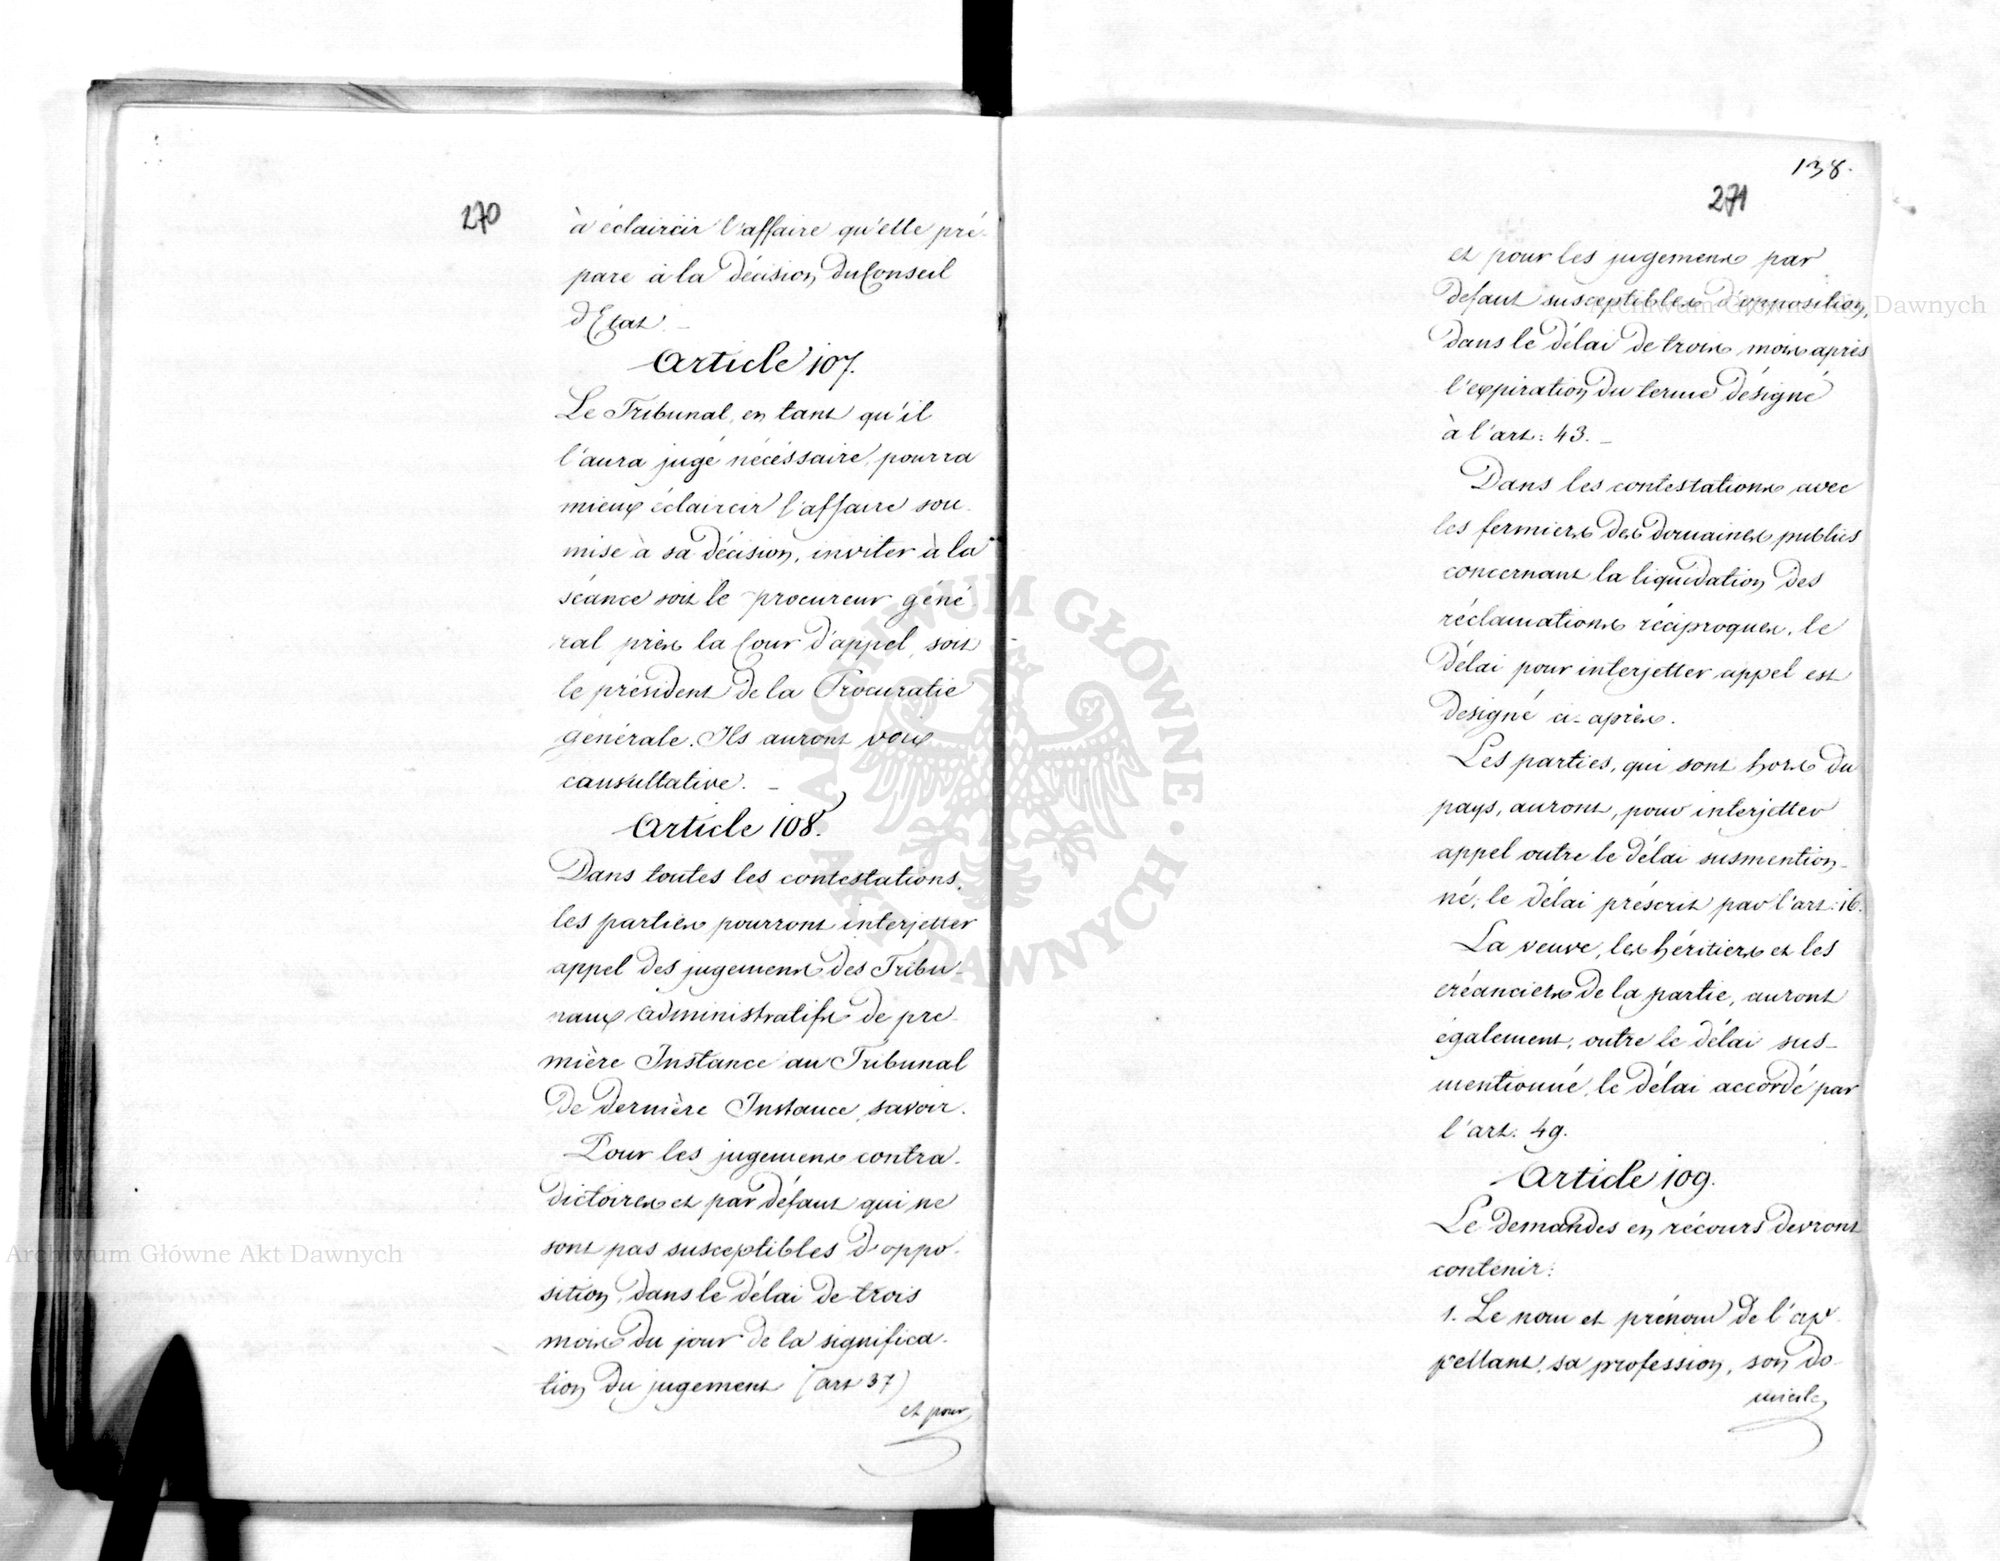 270
à éclaircir l'affaire qu'elle pré-
pare à la décision du Conseil
d'Etat. –
Article 107.
Le Tribunal, en tant qu'il
l'aura jugé nécéssaire, pourra
mieux éclaircir l'affaire sou-
mise à sa décision, inviter à la
séance soit le procureur géné-
ral près la Cour d'appel, soit
le président de la Procuratie
générale. Ils auront voix
consultative. –
Article 108.
Dans toutes les contestations,
les parties pourront interjetter
appel des jugemens des Tribu-
naux administratifs de pre-
mière Instance au Tribunal
de dernière Instance, savoir.
Pour les jugemens contra-
dictoires et par défaut qui ne
sont pas susceptibles d'oppo-
sition, dans le délai de trois
mois du jour de la significa-
tion du jugement (art 37)
et pour
138.
271
et pour les jugemens par
défaut susceptibles d'opposition,
dans le délai de trois mois après
l'expiration du terme désigné
à l'art: 43. –
Dans les contestations avec
les fermiers des domaines publics
concernant la liquidation des
réclamations réciproques, le
délai pour interjetter appel est
désigné ci-après.
Les parties, qui sont hors du
pays, auront, pour interjetter
appel outre le délai susmention-
né, le délai préscrit par l'art: 16.
La veuve, les héritiers et les
créanciers de la partie, auront
également, outre le délai sus-
mentionné, le délai accordé par
l'art. 49.
Article 109.
Le demandes en récours devront
contenir:
1. Le nom et prénom de l'ap-
pellant, sa profession, son do-
micile,
Archiwum Główne Akt Dawnych
Archiwum Główne Akt Dawnych
ARCHIWUM GŁÓWNE AKT DAWNYCH